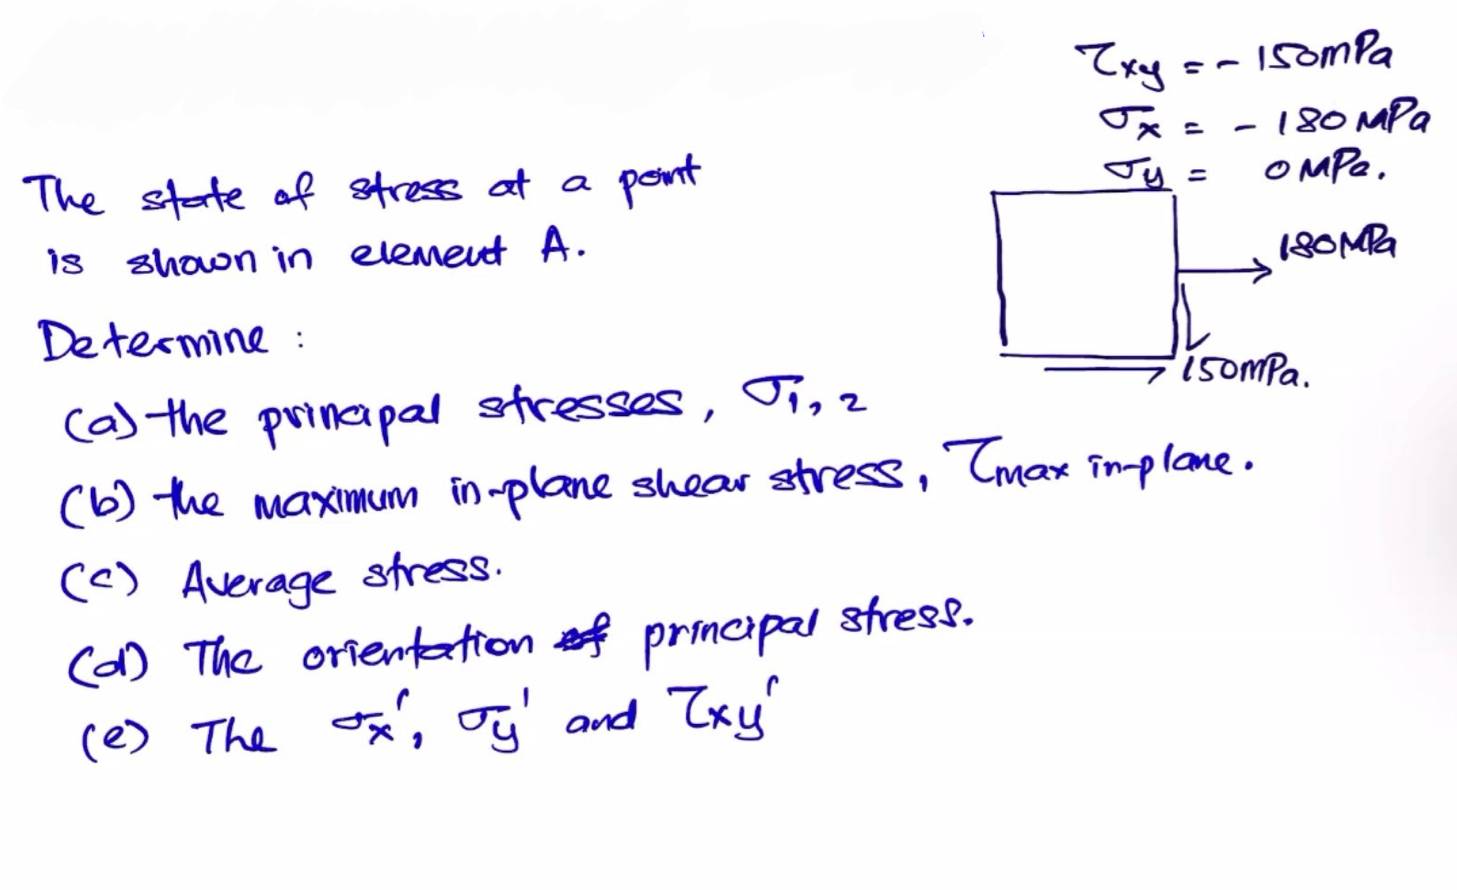 τxy = - 150mPa
σx = - 180 MPa
σy = 0 MPa.
The state of stress at a point
is shown in element A.
180MPa
Determine :
150mPa.
(a) the principal stresses, σ1, 2
(b) the maximum in-plane shear stress, τmax in-plane.
(c) Average stress.
(d) The orientation of principal stress.
(e) The σx', σy' and τxy'